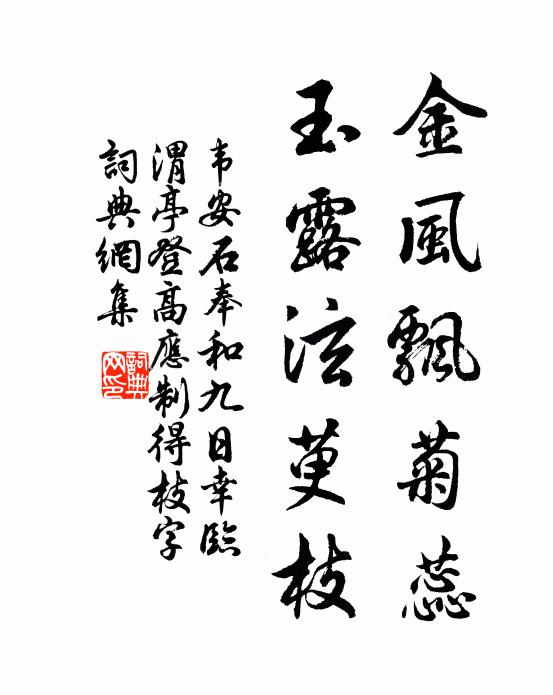 金風飄菊蕊
玉露泫萸枝
韦安石奉和九日幸臨
渭亭登高應制得枝字
詞典網集
詞典
网印